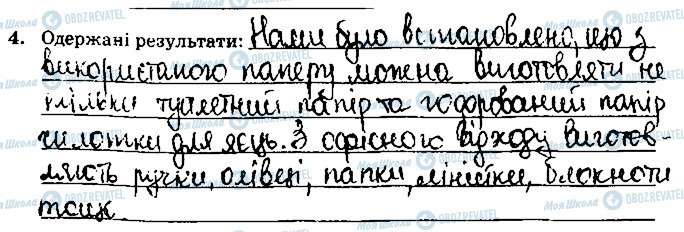 4. Одержані результати: Нами було встановлено, що з
використаного паперу можна виготовляти не
тільки туалетний папір та гофрований папір
й лотки для яєць. З офісного відходу виготов-
ляють ручки, олівці, папки, лінійки, блокноти